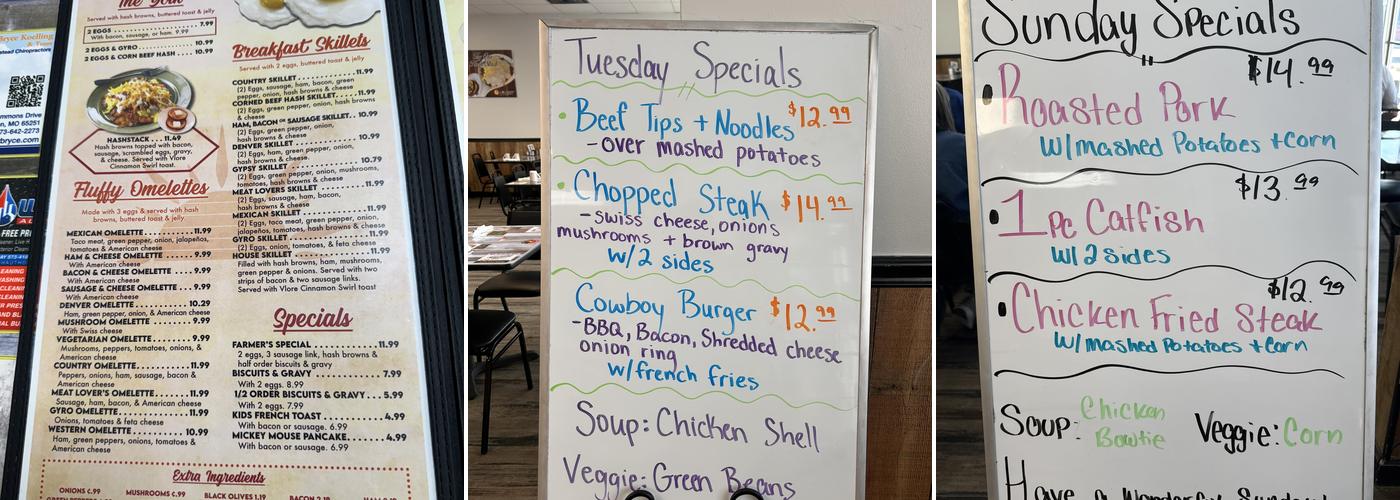 The Goat
Served with hash browns, buttered toast & jelly
2 EGGS 7.99
With bacon, sausage, or ham. 9.99
2 EGGS & GYRO 10.99
2 EGGS & CORN BEEF HASH 10.99
HASHSTACK . . . 11.49
Hash browns topped with bacon,
sausage, scrambled eggs, gravy,
& cheese. Served with Vlore
Cinnamon Swirl toast.
Fluffy Omelettes
Made with 3 eggs & served with hash
browns, buttered toast & jelly
MEXICAN OMELETTE 11.99
Taco meat, green pepper, onion, jalapeños,
tomatoes & American cheese
HAM & CHEESE OMELETTE 9.99
With American cheese
BACON & CHEESE OMELETTE 9.99
With American cheese
SAUSAGE & CHEESE OMELETTE 9.99
With American cheese
DENVER OMELETTE 10.29
Ham, green pepper, onion, & American cheese
MUSHROOM OMELETTE 9.99
With Swiss cheese
VEGETARIAN OMELETTE 9.99
Mushrooms, peppers, tomatoes, onions, &
American cheese
COUNTRY OMELETTE 11.99
Peppers, onions, ham, sausage, bacon &
American cheese
MEAT LOVER'S OMELETTE 11.99
Sausage, ham, bacon, & American cheese
GYRO OMELETTE 11.99
Onions, tomatoes & feta cheese
WESTERN OMELETTE 10.99
Ham, green peppers, onions, tomatoes &
American cheese
Breakfast Skillets
Served with 2 eggs, buttered toast & jelly
COUNTRY SKILLET 11.99
(2) Eggs, sausage, ham, bacon, green
pepper, onion, hash browns & cheese
CORNED BEEF HASH SKILLET 11.99
(2) Eggs, green pepper, onion, hash browns
& cheese
HAM, BACON OR SAUSAGE SKILLET 10.99
(2) Eggs, green pepper, onion,
hash browns & cheese
DENVER SKILLET 10.99
(2) Eggs, ham, green pepper, onion,
hash browns & cheese
GYPSY SKILLET 10.79
(2) Eggs, green pepper, onion, mushrooms,
tomatoes, hash browns & cheese
MEAT LOVERS SKILLET 11.99
(2) Eggs, sausage, ham, bacon,
hash browns & cheese
MEXICAN SKILLET 11.99
(2) Eggs, taco meat, green pepper, onion,
jalapeños, tomatoes, hash browns & cheese
GYRO SKILLET 11.99
(2) Eggs, onion, tomatoes, & feta cheese
HOUSE SKILLET 11.99
Filled with hash browns, ham, mushrooms,
green pepper & onions. Served with two
strips of bacon & two sausage links.
Served with Vlore Cinnamon Swirl toast
Specials
FARMER'S SPECIAL 11.99
2 eggs, 3 sausage link, hash browns &
half order biscuits & gravy
BISCUITS & GRAVY 7.99
With 2 eggs. 8.99
1/2 ORDER BISCUITS & GRAVY 5.99
With 2 eggs. 7.99
KIDS FRENCH TOAST 4.99
With bacon or sausage. 6.99
MICKEY MOUSE PANCAKE 4.99
With bacon or sausage. 6.99
Extra Ingredients
ONIONS .99 MUSHROOMS .99 BLACK OLIVES 1.19
Tuesday Specials
Beef Tips + Noodles $12.99
- over mashed potatoes
Chopped Steak $14.99
- Swiss cheese, onions
mushrooms + brown gravy
w/2 sides
Cowboy Burger $12.99
- BBQ, Bacon, Shredded cheese
onion ring
w/french fries
Soup: Chicken Shell
Veggie: Green Beans
Sunday Specials
$14.99
Roasted Pork
w/mashed Potatoes + Corn
$13.99
1pc Catfish
w/ 2 sides
$12.99
Chicken Fried Steak
w/mashed Potatoes + Corn
Soup: Chicken Bowtie
Veggie: Corn
Have a Wonderful Sunday